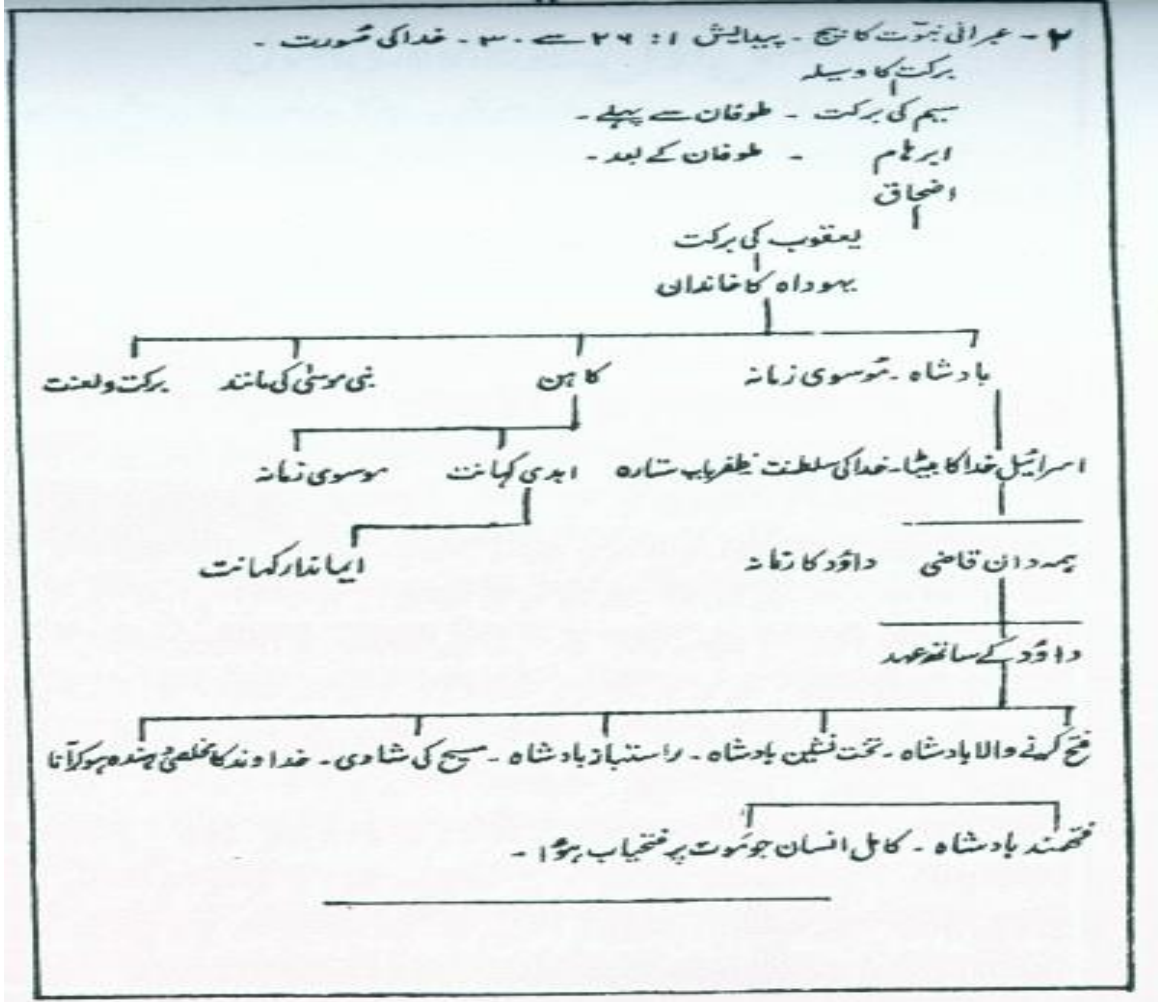 ۲ - عبرانی نبوّت کا بیج - پیدایش ۱: ۲۶ سے ۳۰ - خدا کی صُورت -
برکت کا وسیلہ
سیم کی برکت - طوفان سے پہلے -
ابرہام - طوفان کے بعد -
اضحاق
یعقوب کی برکت
یہوداہ کا خاندان
بادشاہ - مُوسوی زمانہ کاہن نبی موسیٰ کی مانند برکت و لعنت
اسرائیل خدا کا بیٹا - خدا کی سلطنت ظفریاب ستارہ ابدی کہانت موسوی زمانہ
ہمہ دان قاضی داؤد کا زمانہ ایماندار کہانت
داؤد کے ساتھ عہد
فتح کرنے والا بادشاہ - تخت نشین بادشاہ - راستباز بادشاہ - مسیح کی شادی - خداوند کا مخلصی دہندہ ہو کر آنا
فتحمند بادشاہ - کامل انسان جو مَوت پر فتحیاب ہؤا -